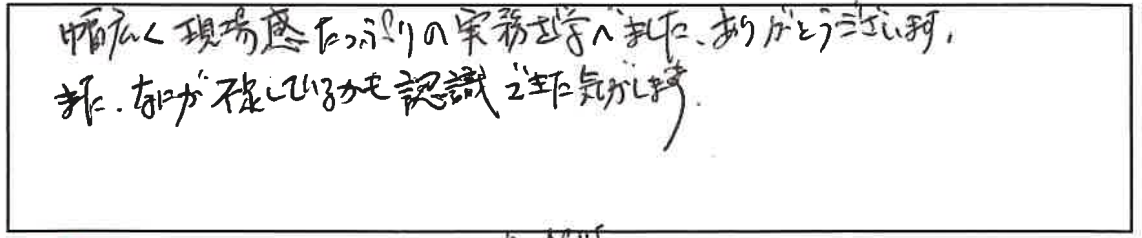 幅広く現場感たっぷりの実務を学べました、ありがとうございます。
また、なにが不足しているかも認識できた気がします。